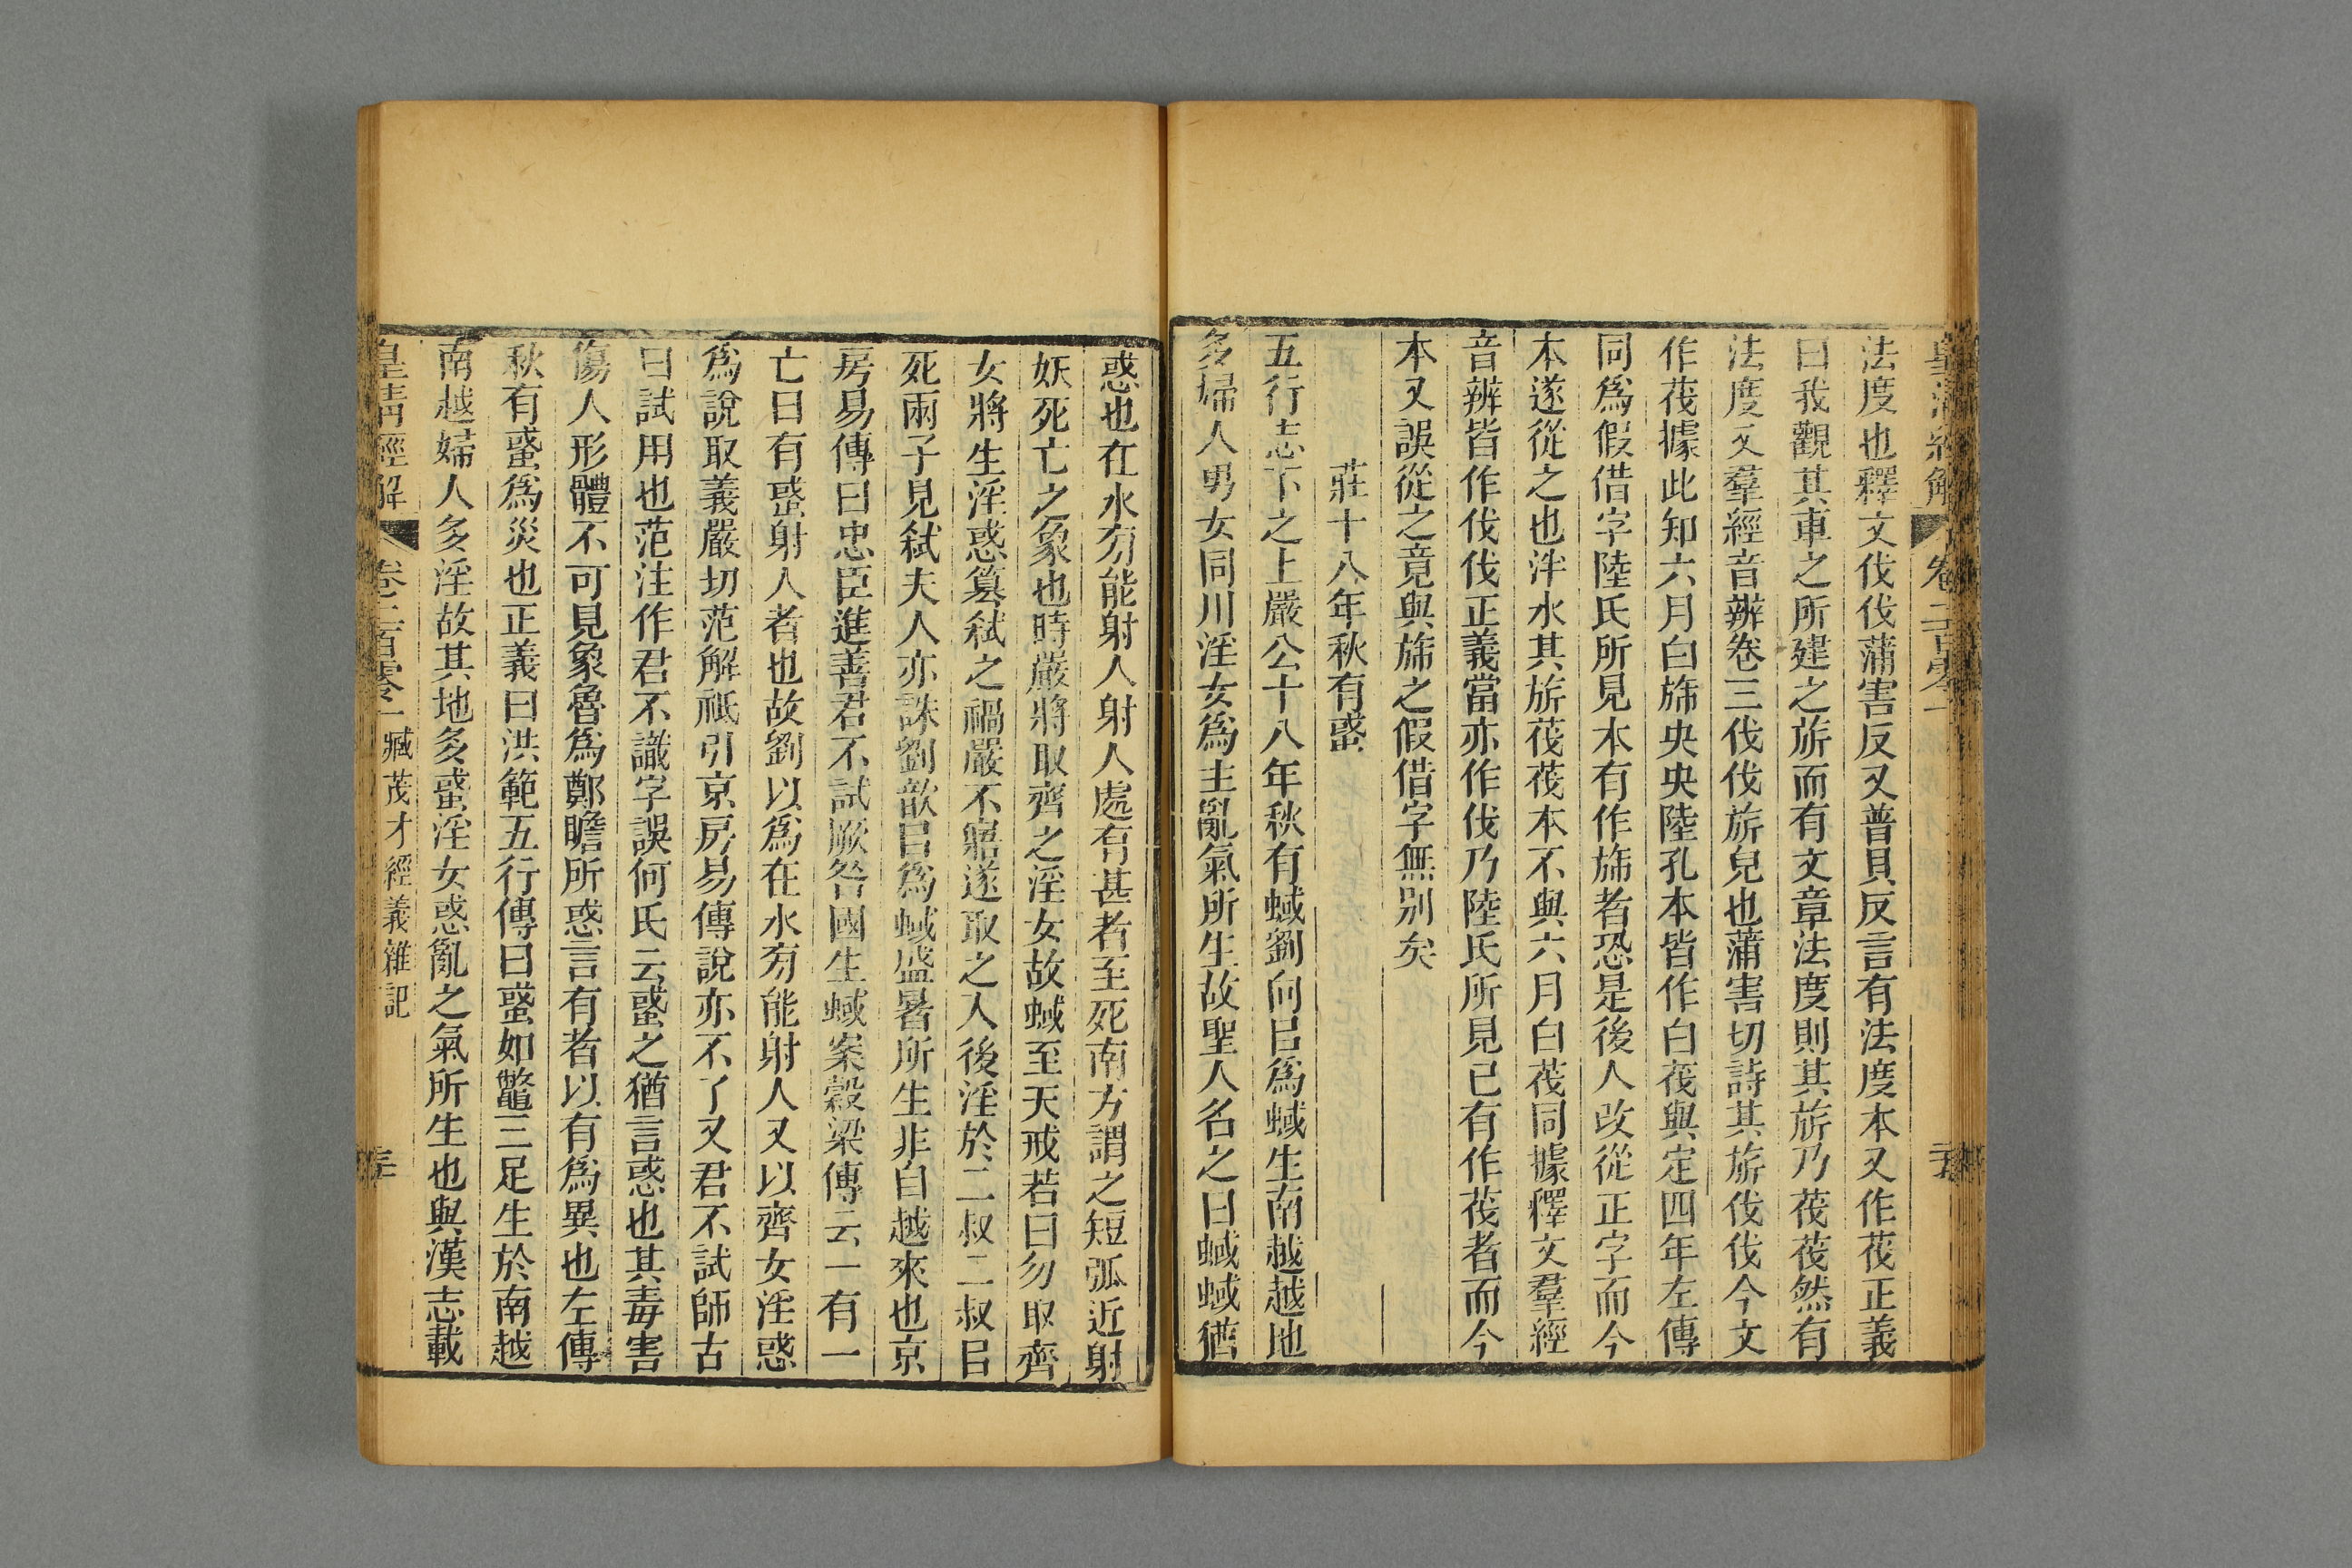 皇清經解
卷二百零一
法度也釋文伐伐蒲害反又普貝反言有法度本又作茷正義
曰我觀其車之所建之旂而有文章法度則其旂乃茷茷然有
法度又羣經音辨卷三伐伐旂皃也蒲害切詩其旂伐伐今文
作茷據此知六月白旆央央陸孔本皆作白茷與定四年左傳
同爲假借字陸氏所見本有作旆者恐是後人改從正字而今
本遂從之也泮水其旂茷茷本不與六月白茷同據釋文羣經
音辨皆作伐伐正義當亦作伐乃陸氏所見已有作茷者而今
本又誤從之竟與旆之假借字無別矣
莊十八年秋有蜮
五行志下之上嚴公十八年秋有蜮劉向㠯爲蜮生南越越地
多婦人男女同川淫女爲主亂氣所生故聖人名之曰蜮蜮猶
惑也在水旁能射人射人處有甚者至死南方謂之短弧近射
妖死亡之象也時嚴將取齊之淫女故蜮至天戒若曰勿取齊
女將生淫惑篡弒之禍嚴不寤遂取之入後淫於二叔二叔㠯
死兩子見弒夫人亦誅劉歆㠯爲蜮盛暑所生非自越來也京
房易傳曰忠臣進善君不試厥咎國生蜮案穀梁傳云一有一
亡曰有蜮射人者也故劉以爲在水旁能射人又以齊女淫惑
爲說取義嚴切范解祗引京房易傳說亦不了又君不試師古
曰試用也范注作君不識字誤何氏云蜮之猶言惑也其毒害
傷人形體不可見象魯爲鄭瞻所惑言有者以有爲異也左傳
秋有蜮爲災也正義曰洪範五行傳曰蜮如鼈三足生於南越
南越婦人多淫故其地多蜮淫女惑亂之氣所生也與漢志載
皇清經解
卷二百零一
臧茂才經義雜記
三十